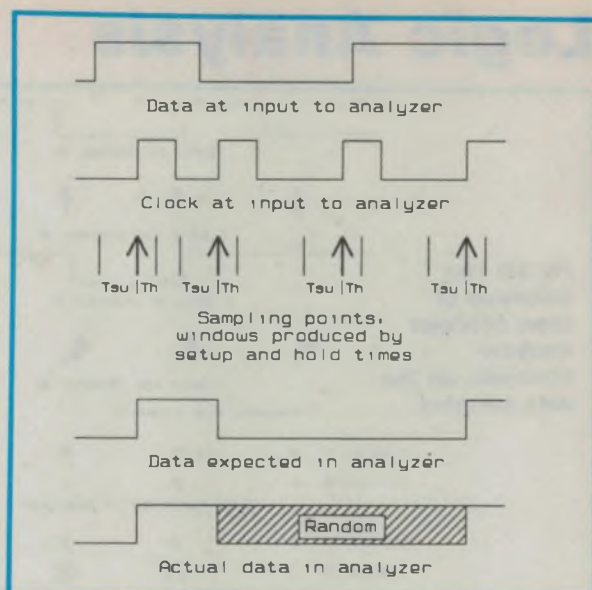 Data at input to analyzer
Clock at input to analyzer
Tsu Th Tsu Th Tsu Th Tsu Th
Sampling points,
windows produced by
setup and hold times
Data expected in analyzer
Random
Actual data in analyzer